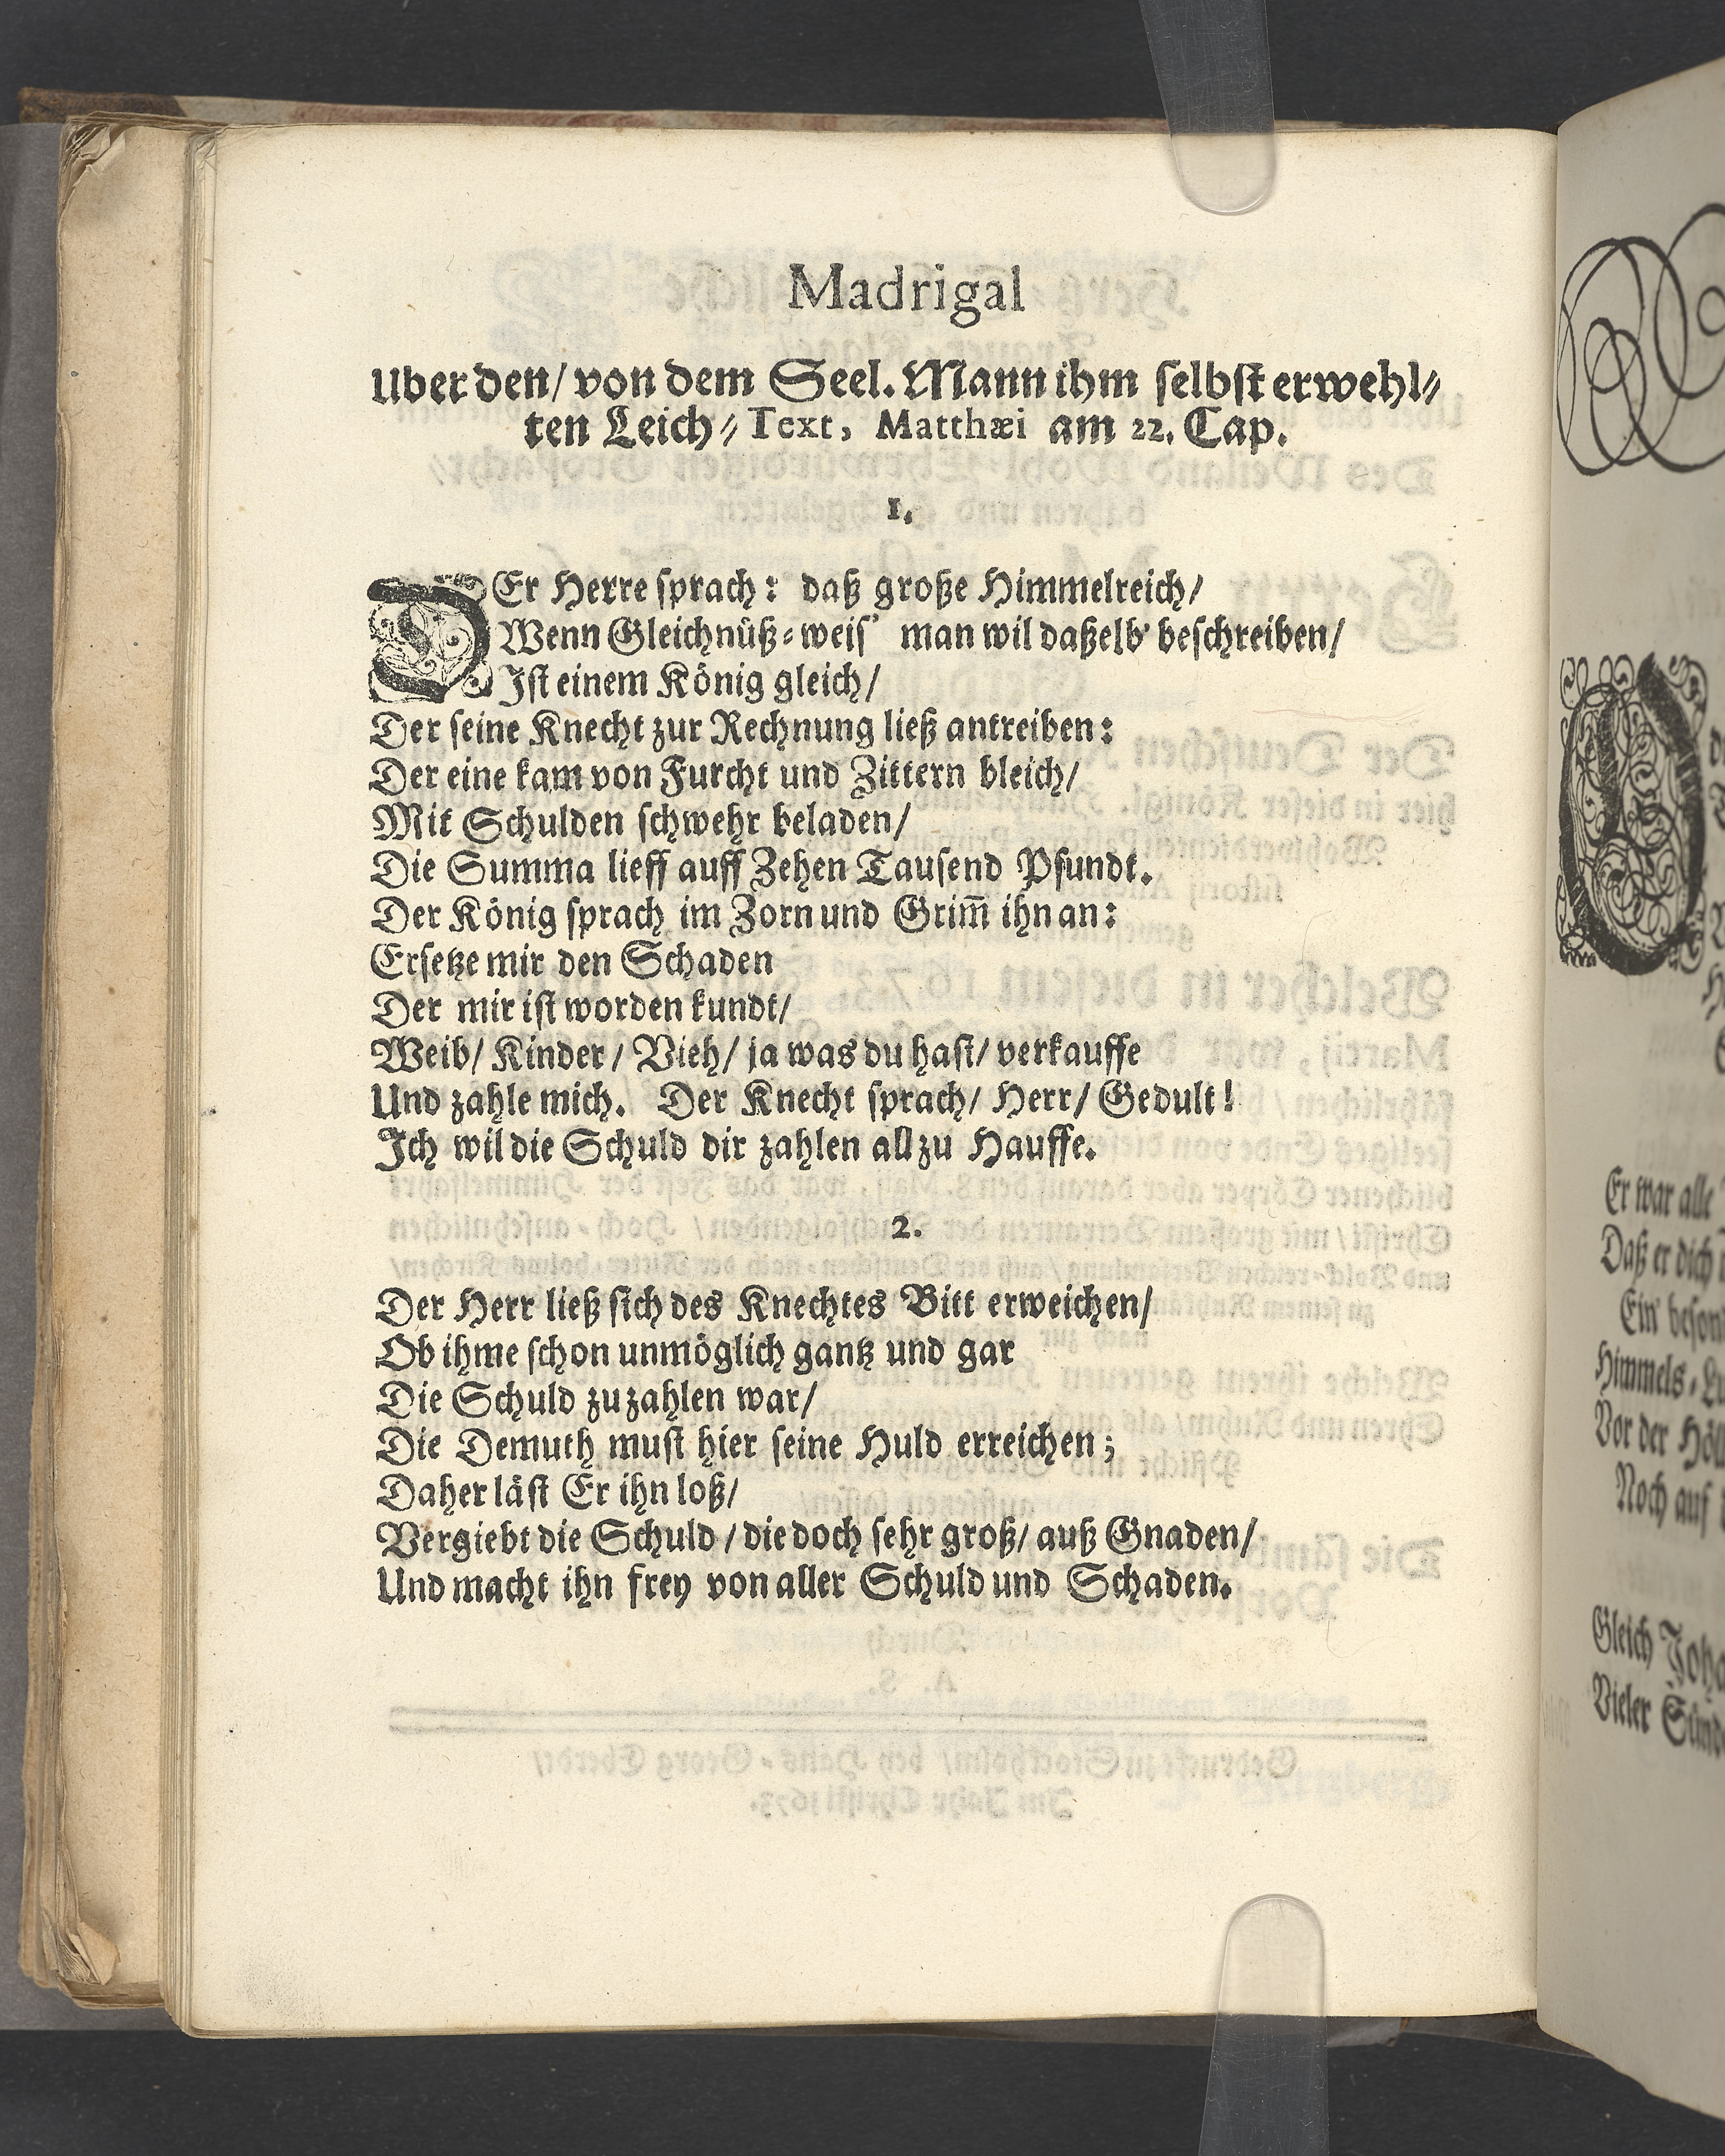 Madrigal
Uber den/ von dem Seel. Mann ihm selbst erwehl⸗
ten Leich⸗Text, Matthæi am 22. Cap.
1.
DEr Herre sprach: daß große Himmelreich/
Wenn Gleichnüß⸗weis' man wil daßelb' beschreiben/
Ist einem König gleich/
Der seine Knecht zur Rechnung ließ antreiben:
Der eine kam von Furcht und Zittern bleich/
Mit Schulden schwehr beladen/
Die Summa lieff auff Zehen Tausend Pfundt.
Der König sprach im Zorn und Grim̅ ihn an:
Ersetze mir den Schaden
Der mir ist worden kundt/
Weib/ Kinder/ Vieh/ ja was du hast/ verkauffe
Und zahle mich. Der Knecht sprach/ Herr/ Gedult!
Ich wil die Schuld dir zahlen all zu Hauffe.
2.
Der Herr ließ sich des Knechtes Bitt erweichen/
Ob ihme schon unmöglich gantz und gar
Die Schuld zu zahlen war/
Die Demuth must hier seine Huld erreichen;
Daher läst Er ihn loß/
Vergiebt die Schuld/ die doch sehr groß/ auß Gnaden/
Und macht ihn frey von aller Schuld und Schaden.
Er war alle
Daß er dich
Ein
Himmels⸗
Vor der
Noch auf
Gleich
Vieler